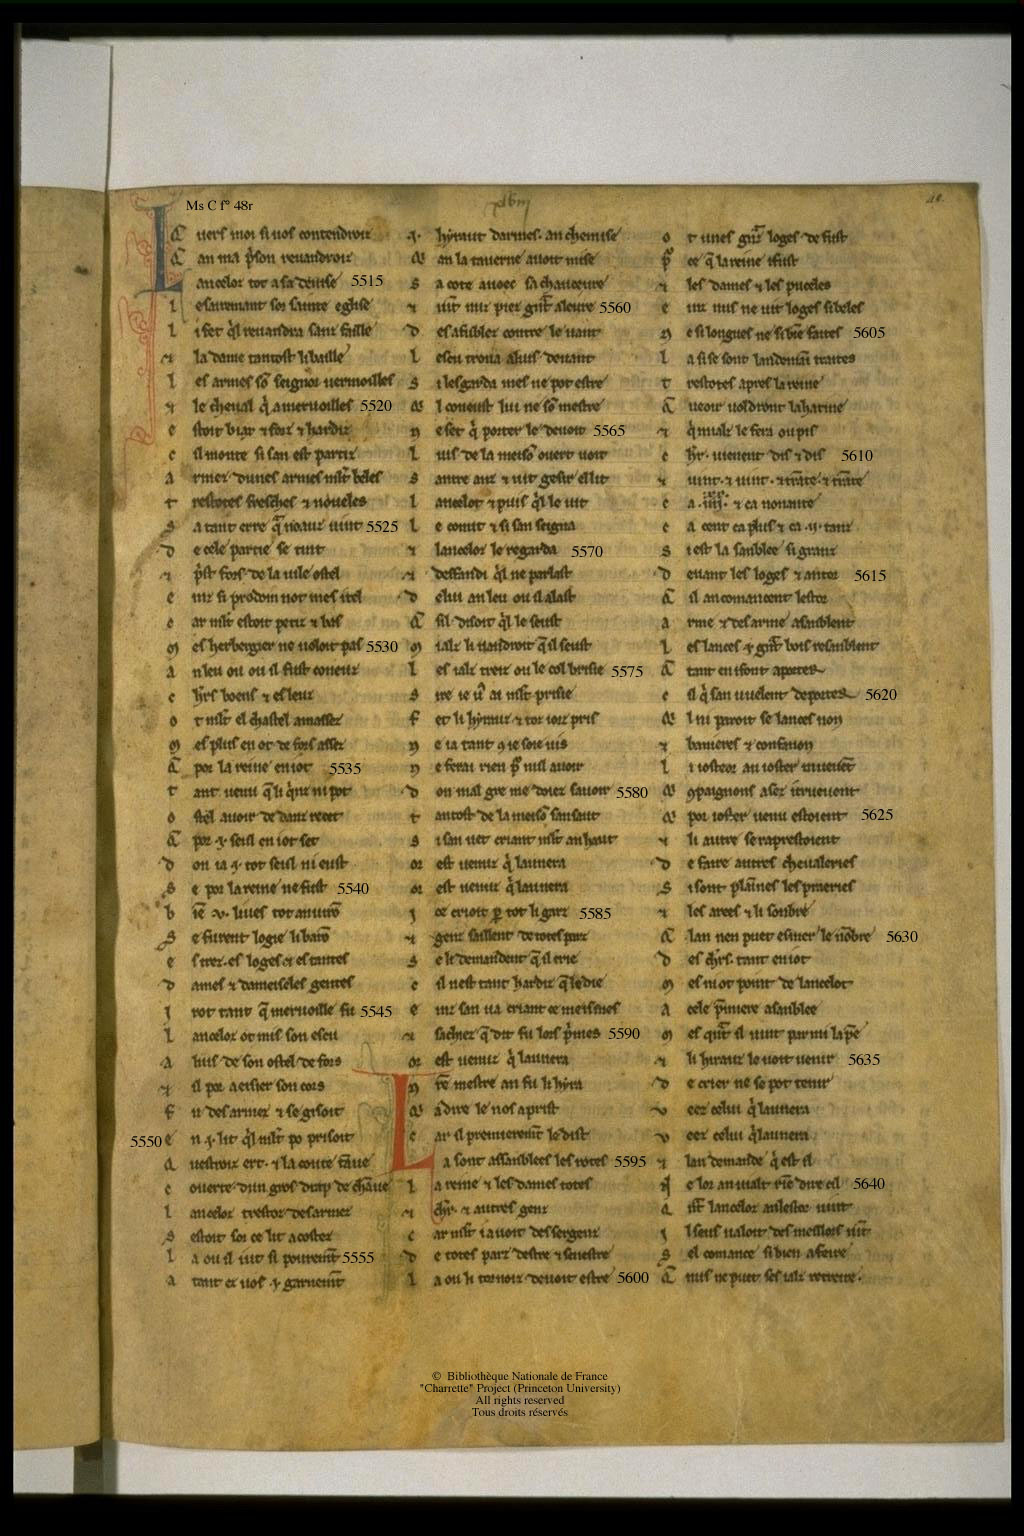 Ms C f° 48r
A uers moi si uos contendroiz
Q an ma p̃son reuandroiz
Lancelot tot a sa deuise 5515
L e fauemant
L i fet q̃l reuandra sanz faille
⁊ la dame tantost li baille
L es armes sõ seignor uermoilles
⁊ le cheual q̃ a meruoilles 5520
E stoit biax ⁊ forz ⁊ hardiz
C il monte si san est partiz
A rmez dunes armes mlt̃ beles
T restotes fresches ⁊ noueles
S a tant erre q̃ noauz uint 5525
D e cele partie se tint
⁊ p̃st fors de la uile ostel
E inz si prodom not mes itel
C ar mlt̃ estoit petiz ⁊ bas
M es herbergier ne uoloit pas 5530
A n leu ou il fust coneuz
C hrs boens ⁊ esleuz
O t mlt̃ el chastel amassez
M es plus en ot de fors assez
Q por la reine en iot 5535
T ant uenu q̃ li q̃nz ni pot
O stel auoir dedanz recet
Q por .i. seul en iot set
D on ia .i. tot seul ni eust
S e por la reine ne fust 5540
B iẽ .v. liues tot anuirõ
S e furent logie li barõ
E s trez es loges ⁊ es tantes
D ames ⁊ dameiseles gentes
I rot tant q̃ meruoille fu 5545
L ancelot ot mis son escu
A luis de son ostel de fors
⁊ il por aeisier son cors
F u desarmez ⁊ se gisoit
5550 E n .i. lit q̃l mlt̃ po prisoit
Q uestroiz ert. ⁊ la coute tãue
C ouerte dun gros drap de chãue
L ancelot trestoz desarmez
S estoit sor ce lit acostez
L a ou il iut si pouremt̃ 5555
A tant ez uos .i. garnemt̃
.I. hyraut darmes. an chemise
Q an la tauerne auoit mise
S a cote auoec sa chauceure
⁊ uint nuz piez grt̃ aleure 5560
D esafublez contre le uant
L escu troua a luis deuant
S i lesgarda mes ne pot estre
Q l coneust lui ne sõ mestre
N e set q̃ porter le deuoit 5565
L uis de la meisõ ouert uoit
S antre anz ⁊ uit gesir el lit
L ancelot ⁊ puis q̃l le uit
L e conut ⁊ si san seigna
⁊ lancelot le regarda 5570
⁊ desfandi q̃l ne parlast
D e lui an leu ou il alast
Q sil disoit q̃l le seust
M ialz li uandroit q̃ il seust
L es ialz trez ou le col brisie 5575
S ire ie uꝰ ai mlt̃ prisie
F et li hyrauz ⁊ toz iorz pris
N e ia tant 9 ie soie uis
N e ferai rien por nul auoir
D on mal gre me doiez sauoir 5580
T antost de la meisõ san saut
S i san uet criant mlt̃ an haut
Or est uenuz q̃ launera
Or est uenuz q̃ launera
I ce crioit p̱ tot li garz 5585
⁊ genz saillent de totes parz
S e li demandent q̃ il crie
C il nest tant hardiz q̃ le die
E inz san ua criant ce meismes
⁊ sachiez q̃ dit fu lors p̃mes 5590
Or est uenuz q̃ launera
N r̃e mestre an fu li hyra
Q a dire le nos aprist
C ar il premieremt̃ le dist
La sont assanblees les rotes 5595
L a reine ⁊ les dames totes
⁊ chr̃. ⁊ autres genz
C ar mlt̃ i auoit des sergenz
D e totes parz destre ⁊ senestre
L a ou li tornoiz deuoit estre 5600
O t unes grãz loges de fust
P or ce q̃ la reine i fust
⁊ les dames ⁊ les puceles
E inz nus ne uit loges si beles
N e si longues ne si biẽ faites 5605
L a si se sont landemain traites
T restotes apres la reine
Q ueoir uoldront la hatine
⁊ q̃ mialz le fera ou pis
C hr̃. uienent dis ⁊ dis 5610
⁊ uint. ⁊ uint. ⁊ trãte. ⁊ trãte
C a .iiii.xx. ⁊ ca nonante
C a cent ca plus ⁊ ca .ii. tanz
S i est la sanblee si granz
D euant les loges ⁊ antor 5615
Q il ancomancent lestor
A rme ⁊ desarme asanblent
L es lances .i. grt̃ bois resanblent
Q tant en i font aporter
C il q̃ san uuelent deporter 5620
Q l ni paroit se lances non
⁊ banieres ⁊ confanon
L i iosteor au ioster mueuẽt
Q 9paignons asez i trueuent
Q por ioster uenu estoient 5625
⁊ li autre se raprestoient
D e faire autres cheualeries
S i sont plaĩnes les praeries
⁊ les arees ⁊ li sonbre
Q lan nen puet esmer le nõbre 5630
D es chr̃s. tant en iot
M es ni ot point de lancelot
A cele p̃miere asanblee
M es q̃nt il uint parmi la p̃e
⁊ li hirauz le uoit uenir 5635
D e crier ne se pot tenir
V eez celui q̃ launera
V eez celui q̃ launera
⁊ lan demande q̃ est il
N e lor an uialt riẽ dire cil 5640
Q nt̃ lancelot an lestor uint
I l seus ualoit des meillors uĩt
S el comance si bien a feire
Q nus ne puet ses ialz retreire.
© Bibliothèque Nationale de France
"Charrette" Project (Princeton University)
All rights reserved
Tous droits réservés